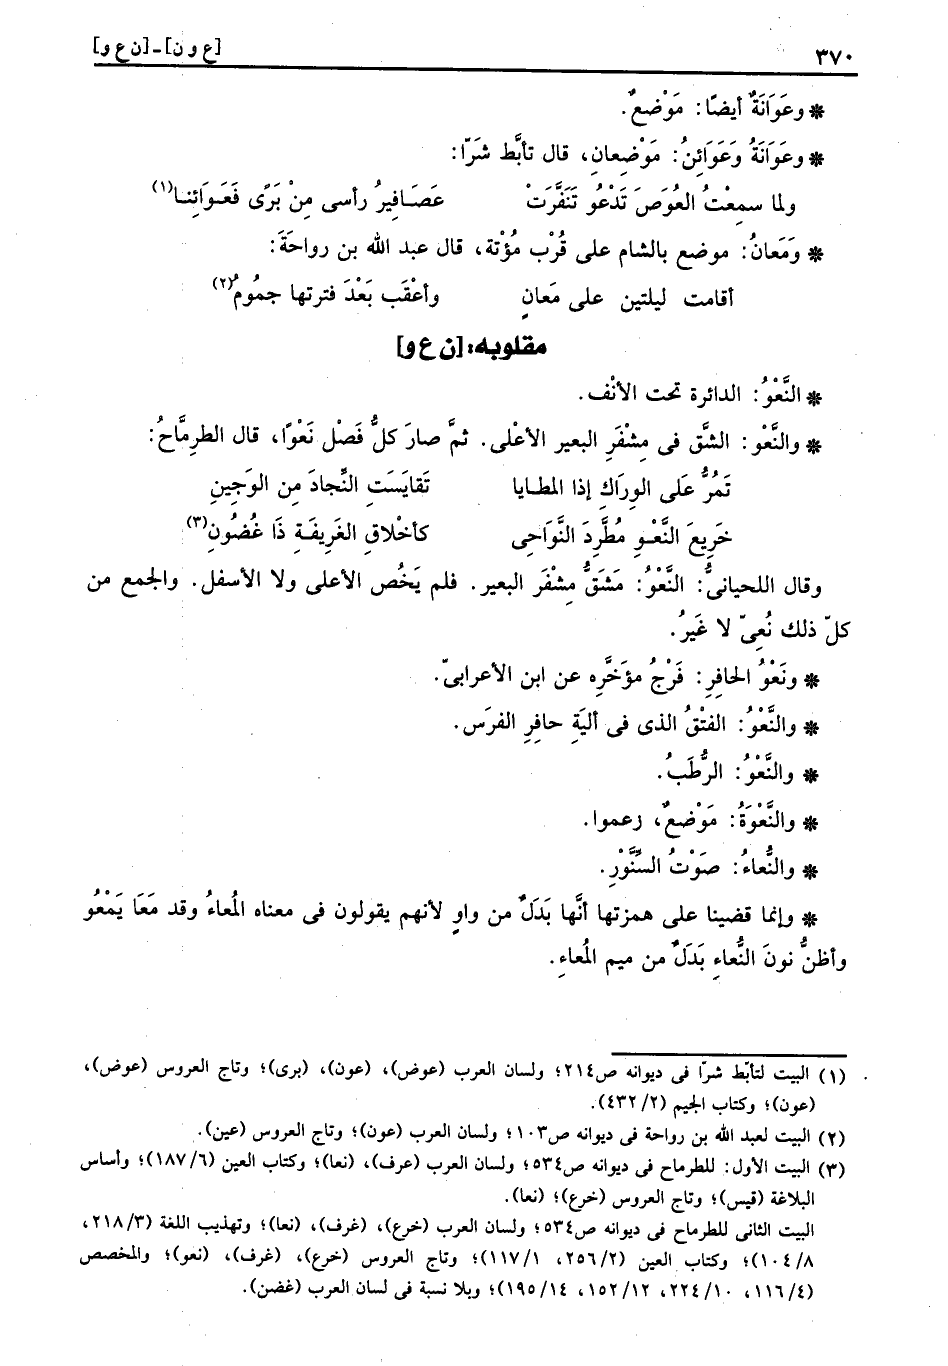 ٣٧٠
[ع و ن] - [ن ع و]
* وعَوَانَةٌ أيضًا: مَوْضعٌ.
* وعَوَانَةُ وَعَوَائِنُ: مَوْضِعانِ، قال تأبَّط شَرّا:
ولما سمِعْتُ العُوَصَ تَدْعُو تَنَفَّرَتْ عَصَافيرُ رأسى مِنْ بَرًى فَعَوَائنا(١)
* وَمَعانُ: موضع بالشام على قُرْب مُؤْتة، قال عبد الله بن رواحَةَ:
أقامت ليلتين على مَعانٍ وأعْقَب بَعْدَ فترتها جمُومُ(٢)
مقلوبه: [ن ع و]
* النَّعْوُ: الدائرة تحت الأنْف.
* والنَّعْو: الشَّق فى مِشْفَرِ البعير الأعْلى. ثمَّ صارَ كلُّ فَصْل نَعْوًا، قال الطرِمَّاحُ:
تَمُرُّ عَلَى الوِرَاكِ إذا المطايا تَقايَسَتِ النِّجادَ مِن الوَجِينِ
خَرِيعَ النَّعْوِ مُطَّرِدَ النَّوَاحِى كأخْلاقِ الغَرِيفَةِ ذَا غُضُونِ(٣)
وقال اللحيانىُّ: النَّعْوُ: مَشَقُّ مِشْفَر البعير. فلم يَخُص الأعلى ولا الأسفل. والجمع من
كلّ ذلك نُعِىّ لا غَيرُ.
* ونَعْوُ الحافِرِ: فَرْجُ مؤخَّرِه عن ابن الأعرابىّ.
* والنَّعْوُ: الفتْقُ الذى فى أليَةِ حافِرِ الفرَس.
* والنَّعْوُ: الرُّطَبُ.
* والنَّعْوَةُ: مَوْضعٌ، زعموا.
* والنُّعاءُ: صَوْتُ السِّنَّوْرِ.
* وإنما قضينا على همزتها أنَّها بَدَلٌ من واوٍ لأنهم يقولون فى معناه المُعاءُ وقد مَعَا يَمْعُو
وأظنُّ نونَ النُّعاءِ بَدَلٌ من ميم المُعاءِ.
(١) البيت لتأبّط شرّا فى ديوانه ص٢١٤؛ ولسان العرب (عوض)، (عون)، (برى)؛ وتاج العروس (عوض)،
(عون)؛ وكتاب الجيم (٢/ ٤٣٢).
(٢) البيت لعبد الله بن رواحة فى ديوانه ص١٠٣؛ ولسان العرب (عون)؛ وتاج العروس (عين).
(٣) البيت الأول: للطرماح فى ديوانه ص٥٣٤؛ ولسان العرب (عرف)، (نعا)؛ وكتاب العين (٦/ ١٨٧)؛ وأساس
البلاغة (قيس)؛ وتاج العروس (خرع)؛ (نعا).
البيت الثانى للطرماح فى ديوانه ص٥٣٤؛ ولسان العرب (خرع)، (غرف)، (نعا)؛ وتهذيب اللغة (٣/ ٢١٨،
٨/ ١٠٤)؛ وكتاب العين (٢/ ٢٥٦، ١/ ١١٧)؛ وتاج العروس (خرع)، (غرف)، (نعو)؛ والمخصص
(٤/ ١١٦، ١٠/ ٢٢٤، ١٢/ ١٥٢، ١٤/ ١٩٥)؛ وبلا نسبة فى لسان العرب (غضن).